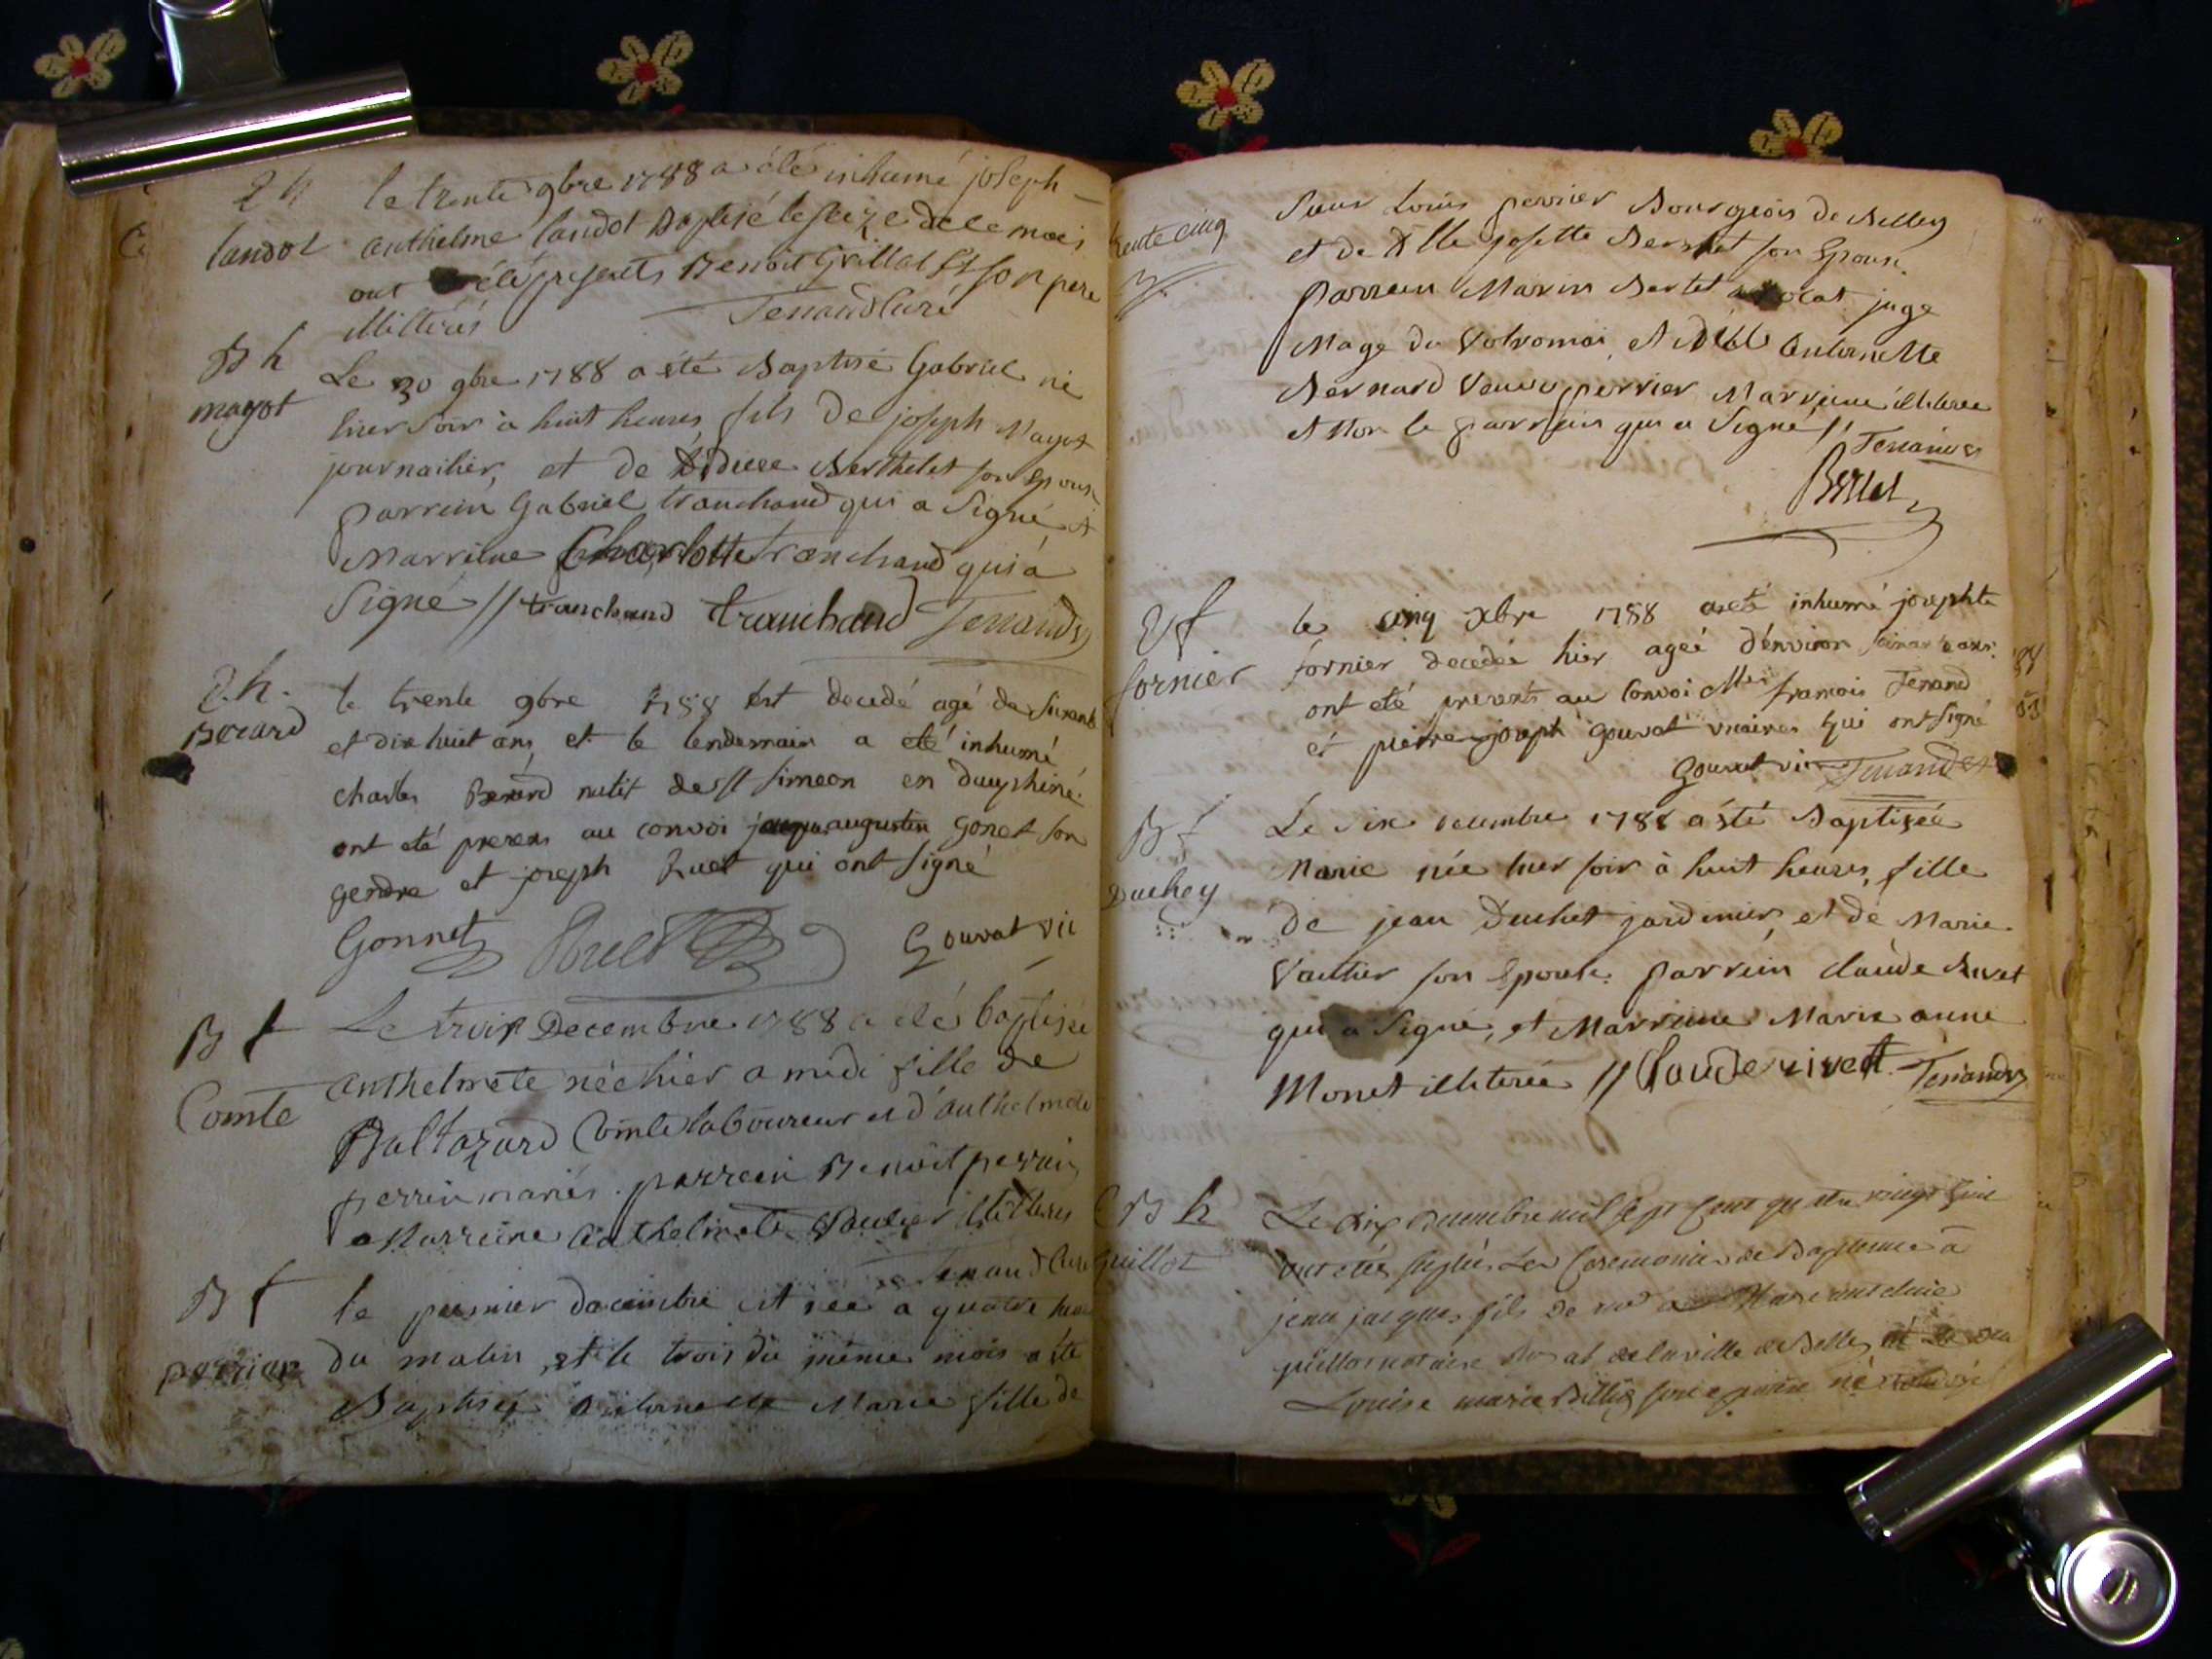 2 h
landot
le trente 9bre 1788 a été inhumé joseph
anthelme landot Baptisé le seize de ce mois
ont été presents Benoit Grillat et son pere
illitérés Tenand Curé
B h
mayot
Le 30 9bre 1788 a été Baptisé Gabriel né
hier soir à huit heures fils de joseph Mayot
journailier, et de Berthelet son Epouse
parrein Gabriel tranchand qui a Signé et
Marreine Charlotte tranchand qui a
Signé // tranchand tranchand Tenand
2. h.
Berard
le trente 9bre 1788 est decedé agé de soixante
et dix huit ans et le lendemain a été inhumé
charles Berard natif de st simeon en dauphiné.
ont eté presens au convoi augustin gonet son
gendre et joseph Ruet qui ont signé
Gonnet Ruet Gouvat vic
B f
Comte
Le trois Decembre 1788 a été baptisée
anthelmete née hier a midi fille de
Baltazard Comte laboureur et d'anthelmete
perrin mariés. parrein Benoit perrin
Marreine anthelmete illitérés
Tenand Curé
B f
perrier
le premier decembre est née a quatre heures
du matin, et le trois du même mois a été
Baptisée Antoinette Marie fille de
trente cinq
Sieur Louis perrier Bourgeois de Belley
et de Dlle josette Bernet son Epouse.
parrein Marin Bertet avocat juge
Mage du Valromai, et Delle Antoinette
Bernard Veuve perrier Marreine illiteree
et Non le parrein qui a Signé // Tenand
Bertet
2 f
fornier
le cinq Xbre 1788 a eté inhumé josephte
fornier decedée hier ageé d'environ ans.
ont eté presents au Convoi Mrs francois Tenand
et pierre joseph gouvat vicaires qui ont signé
Gouvat vic Tenand
B f
Duchey
Le Six decembre 1788 a été Baptizée
Marie née hier soir à huit heures, fille
de jean Duchet jardinier, et de Marie
Vautier son Epouse. parrein claude Rivet
qui a Signé, et Marreine Marie anne
Monet illiterée // Claude rivet. Tenand
B h
Guillot
Le dix decembre mil sept cent quatre vingt huit
ont étés suplées Les Ceremonies de Bapteme à
jean jacques fils de Marc antelme
guillot notaire de la ville de Belley et de
Louise marie Billiez son epouse né